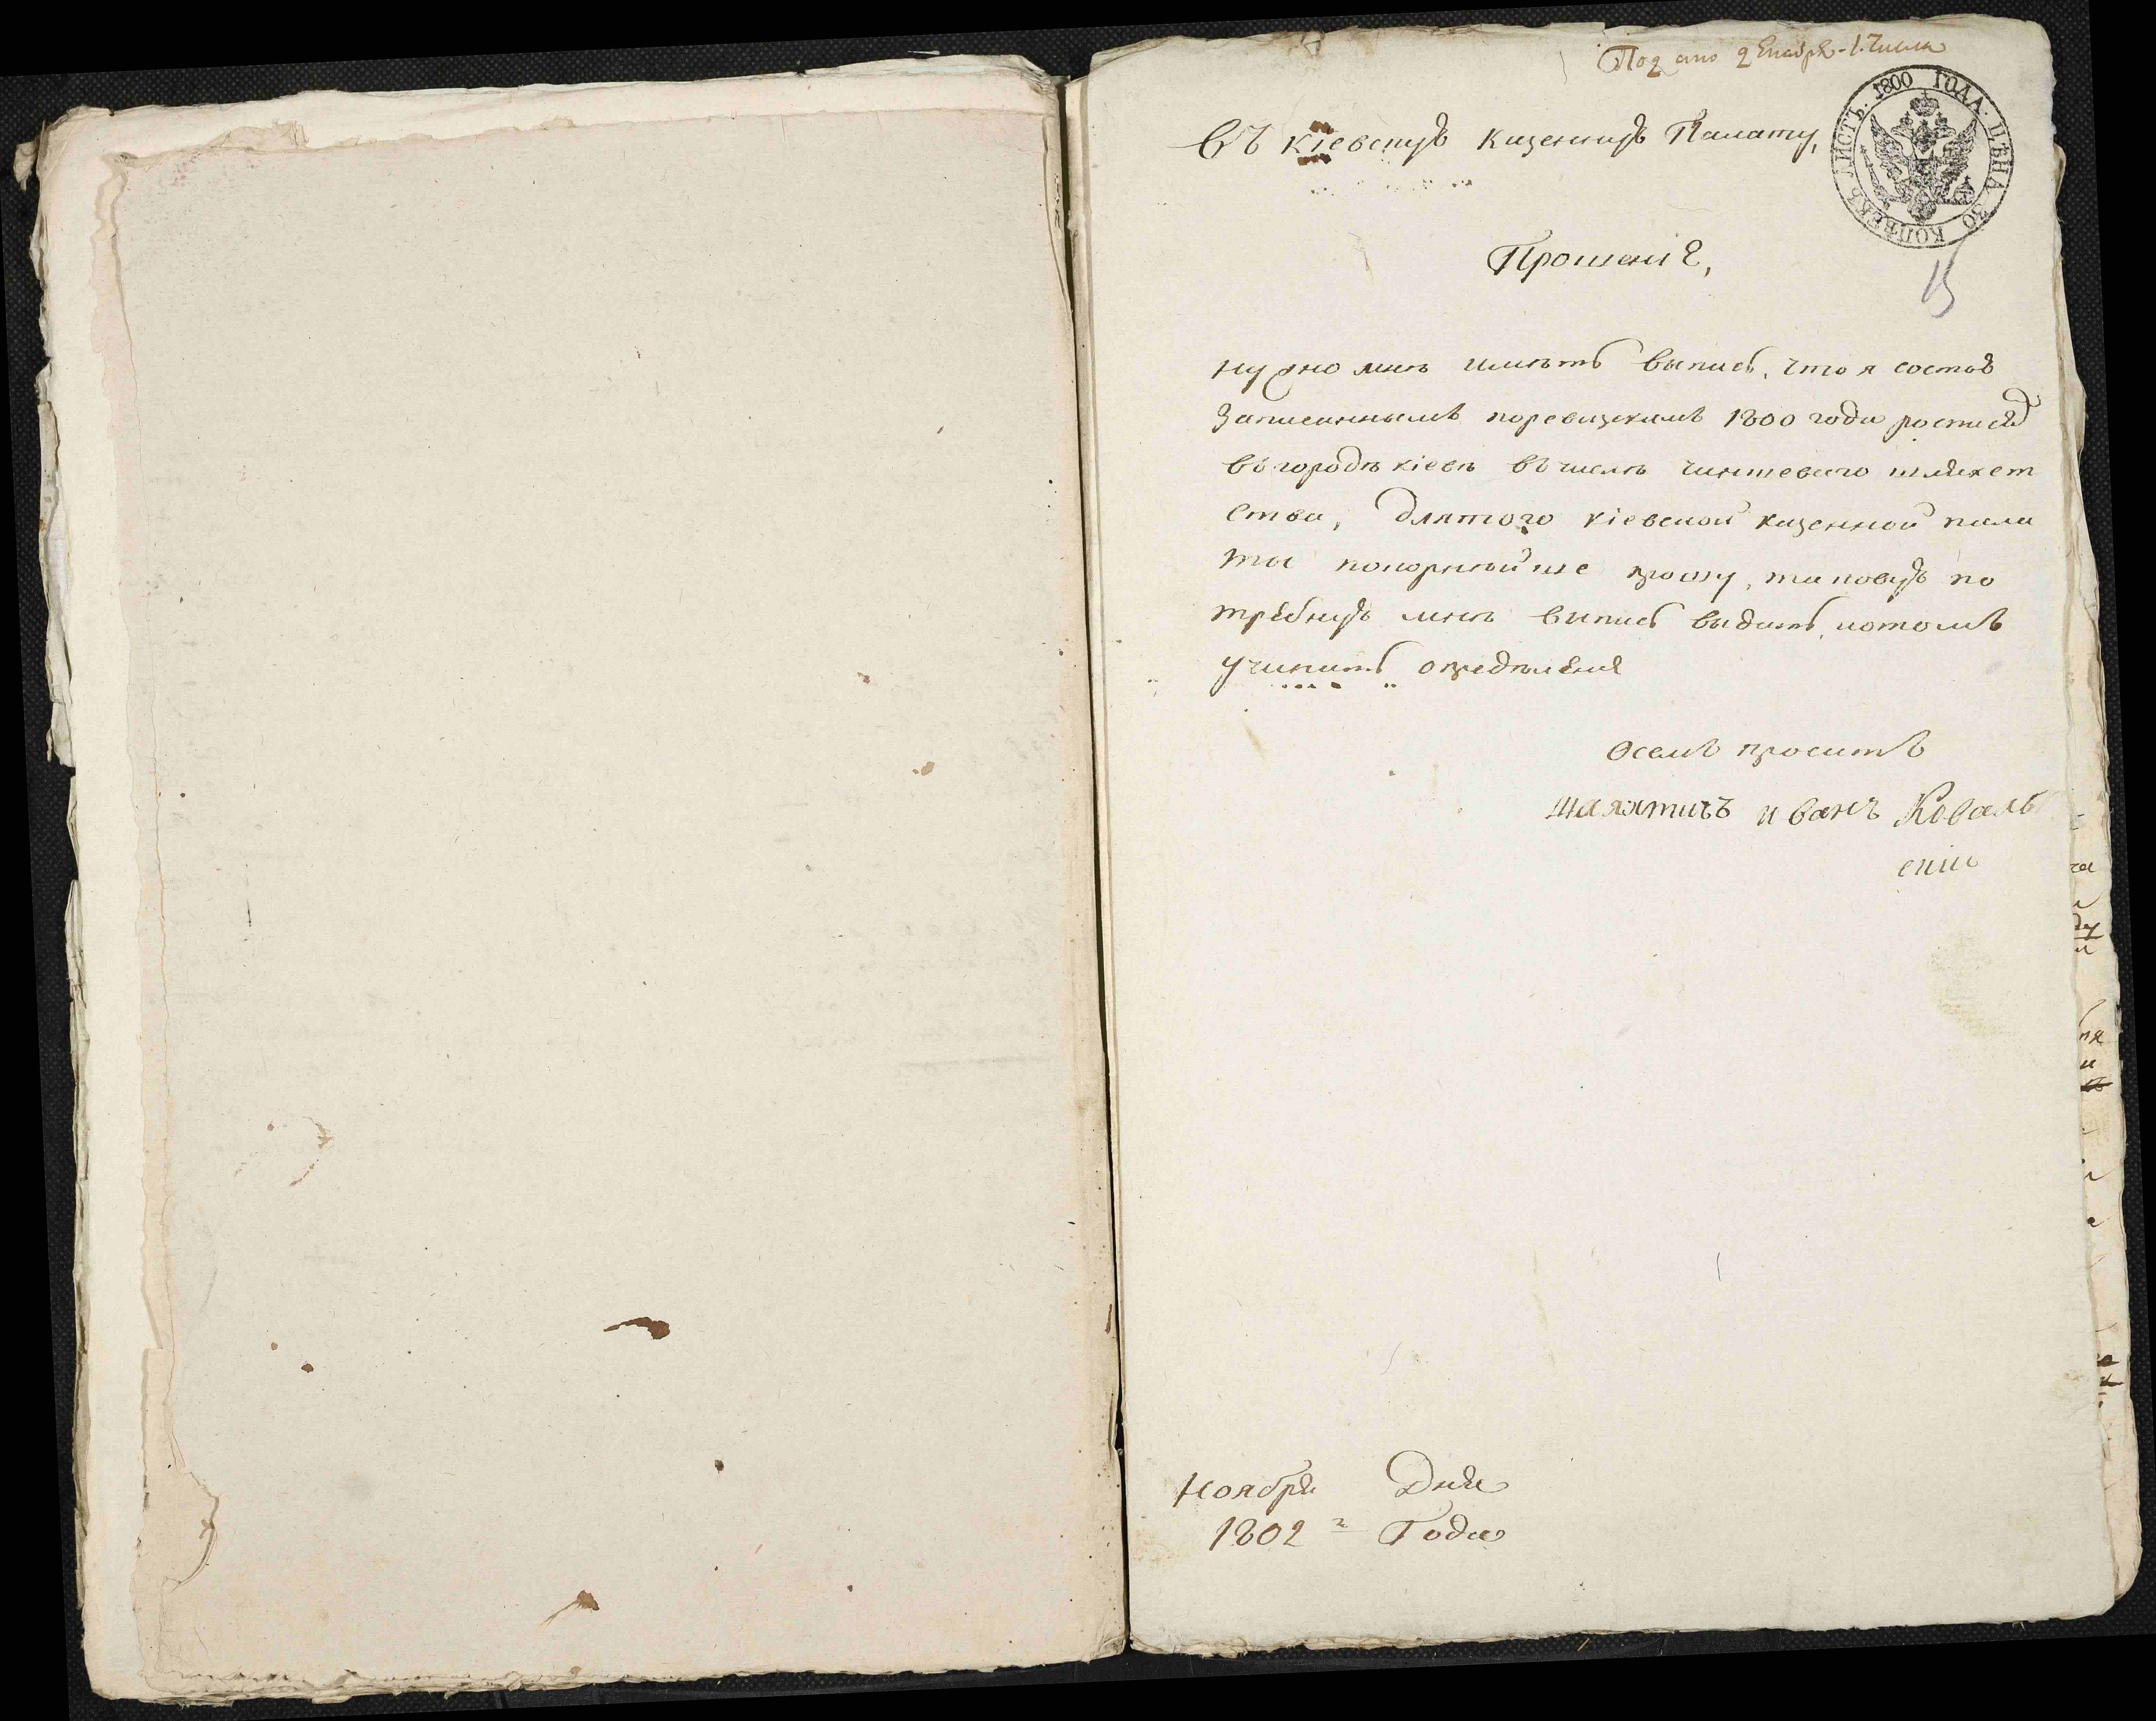 Подано декабря 1. числа
ЛИСТЪ. 1800 ГОДА. ЦѢНА 30 КОПѢЕКЪ
Въ кіевскую казенную Палату,
Прошеніе,
15
нужно мнѣ имѣть выпись, что я состою
записаннымъ поревизскимъ 1800 года
въ городѣ кіевѣ въ числѣ чиншеваго шляхет
ства, для того кіевской казенной пала
ты покорнѣйше прошу, таковую по
требную мнѣ выпись выдать, и о томъ
учинить определения
О семъ проситъ
шляхтичъ иванъ Коваль
скій
Ноября Дня
1802 г Года